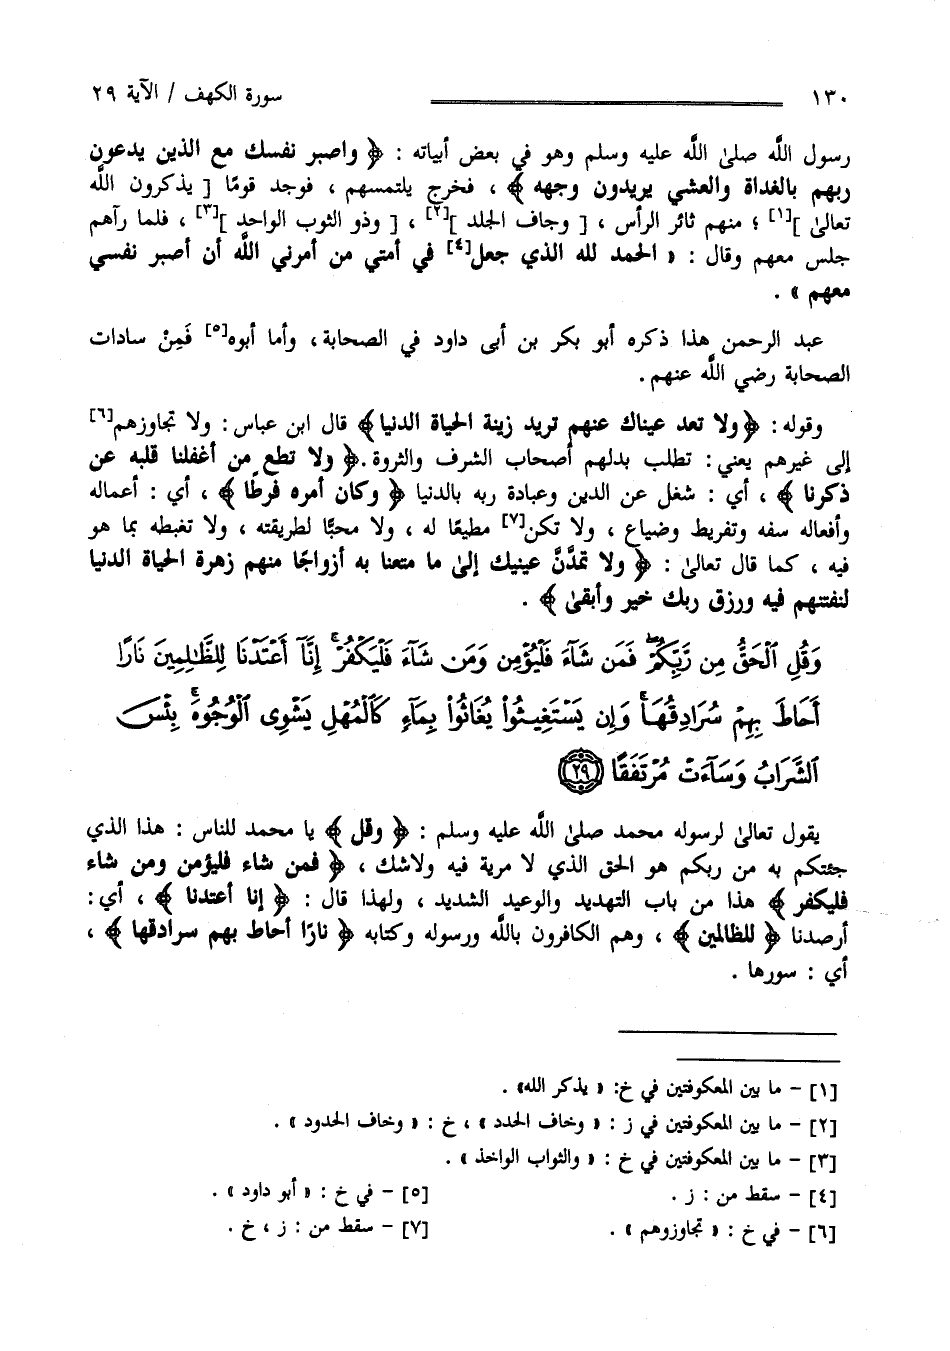 ١٣٠ سورة الكهف / الآية ٢٩
رسول اللَّه صلىٰ اللَّه عليه وسلم وهو في بعض أبياته : ﴿ واصبر نفسك مع الذين يدعون
ربهم بالغداة والعشي يريدون وجهه ﴾ ، فخرج يلتمسهم ، فوجد قومًا [ يذكرون اللَّه
تعالىٰ ][١] ؛ منهم ثائر الرأس ، [ وجاف الجلد ][٢] ، [ وذو الثوب الواحد ][٣] ، فلما رآهم
جلس معهم وقال : « الحمد لله الذي جعل[٤] في أمتي من أمرني اللَّه أن أصبر نفسي
معهم » .
عبد الرحمن هذا ذكره أبو بكر بن أبى داود في الصحابة، وأما أبوه[٥] فَمِنْ سادات
الصحابة رضي اللَّه عنهم.
وقوله: ﴿ولا تعد عيناك عنهم تريد زينة الحياة الدنيا﴾ قال ابن عباس: ولا تجاوزهم[٦]
إلى غيرهم يعني: تطلب بدلهم أصحاب الشرف والثروة.﴿ ولا تطع من أغفلنا قلبه عن
ذكرنا ﴾ ، أي : شغل عن الدين وعبادة ربه بالدنيا ﴿ وكان أمره فرطًا ﴾ ، أي : أعماله
وأفعاله سفه وتفريط وضياع ، ولا تكن[٧] مطيعًا له ، ولا محبًّا لطريقته ، ولا تغبطه بما هو
فيه ، كما قال تعالىٰ : ﴿ ولا تمدَّنَّ عينيك إلىٰ ما متعنا به أزواجًا منهم زهرة الحياة الدنيا
لنفتنهم فيه ورزق ربك خير وأبقىٰ ﴾ .
وَقُلِ ٱلْحَقُّ مِن رَّبِّكُمْ ۖ فَمَن شَآءَ فَلْيُؤْمِن وَمَن شَآءَ فَلْيَكْفُرْ ۚ إِنَّآ أَعْتَدْنَا لِلظَّٰلِمِينَ نَارًا
أَحَاطَ بِهِمْ سُرَادِقُهَا ۚ وَإِن يَسْتَغِيثُوا۟ يُغَاثُوا۟ بِمَآءٍ كَٱلْمُهْلِ يَشْوِى ٱلْوُجُوهَ ۚ بِئْسَ
ٱلشَّرَابُ وَسَآءَتْ مُرْتَفَقًا ٢٩
يقول تعالىٰ لرسوله محمد صلىٰ اللَّه عليه وسلم : ﴿ وقل ﴾ يا محمد للناس : هذا الذي
جئتكم به من ربكم هو الحق الذي لا مرية فيه ولاشك ، ﴿ فمن شاء فليؤمن ومن شاء
فليكفر ﴾ هذا من باب التهديد والوعيد الشديد ، ولهذا قال : ﴿ إنا أعتدنا ﴾ ، أي:
أرصدنا ﴿ للظالمين ﴾ ، وهم الكافرون باللَّه ورسوله وكتابه ﴿ نارًا أحاط بهم سرادقها ﴾ ،
أي : سورها .
[١] - ما بين المعكوفتين في خ: « يذكر الله» .
[٢] - ما بين المعكوفتين في ز : « وخاف الحدد » ، خ : « وخاف الحدود » .
[٣] - ما بين المعكوفتين في خ : « والثواب الواخذ » .
[٤] - سقط من : ز . [٥] - في خ : « أبو داود » .
[٦] - في خ : « تجاوزوهم » . [٧] - سقط من : ز ، خ .